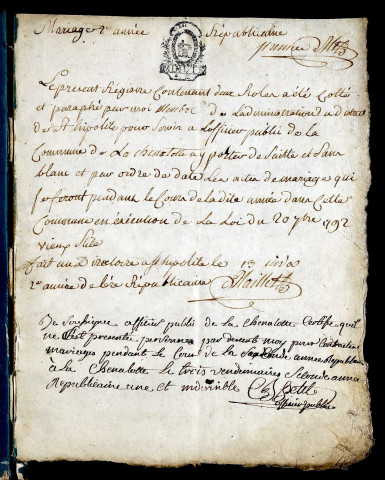 Mariage 2e année Républicaine
premier
Le present Régistre Contenant deux Roles a été Cotté
et paraphé par moi Membre de Ladministration du district
de St hipolite pour Servir a Lofficier public de la
Commune de La Chenalotte a y porter de Suitte et Sans
blanc et par ordre de Datte Les actes de mariage qui
se feront pendant le Cours de la dite année dans Cette
Commune en exécution de La Loi du 20 7bre 1792
vieux Stile
fait au Directoire a St hypolite le 13
2e année de l'ère Républicaine
Je Soussigné officier public de la chenalotte Certifie qu'il
ne s'est presenté personne par devant moy pour Contracter
mariages pendant le Cour de la Seconde année Républicaine
à la Chenalotte le trois vendemiaire Seconde année
Républicaine une et indivisible
officier public